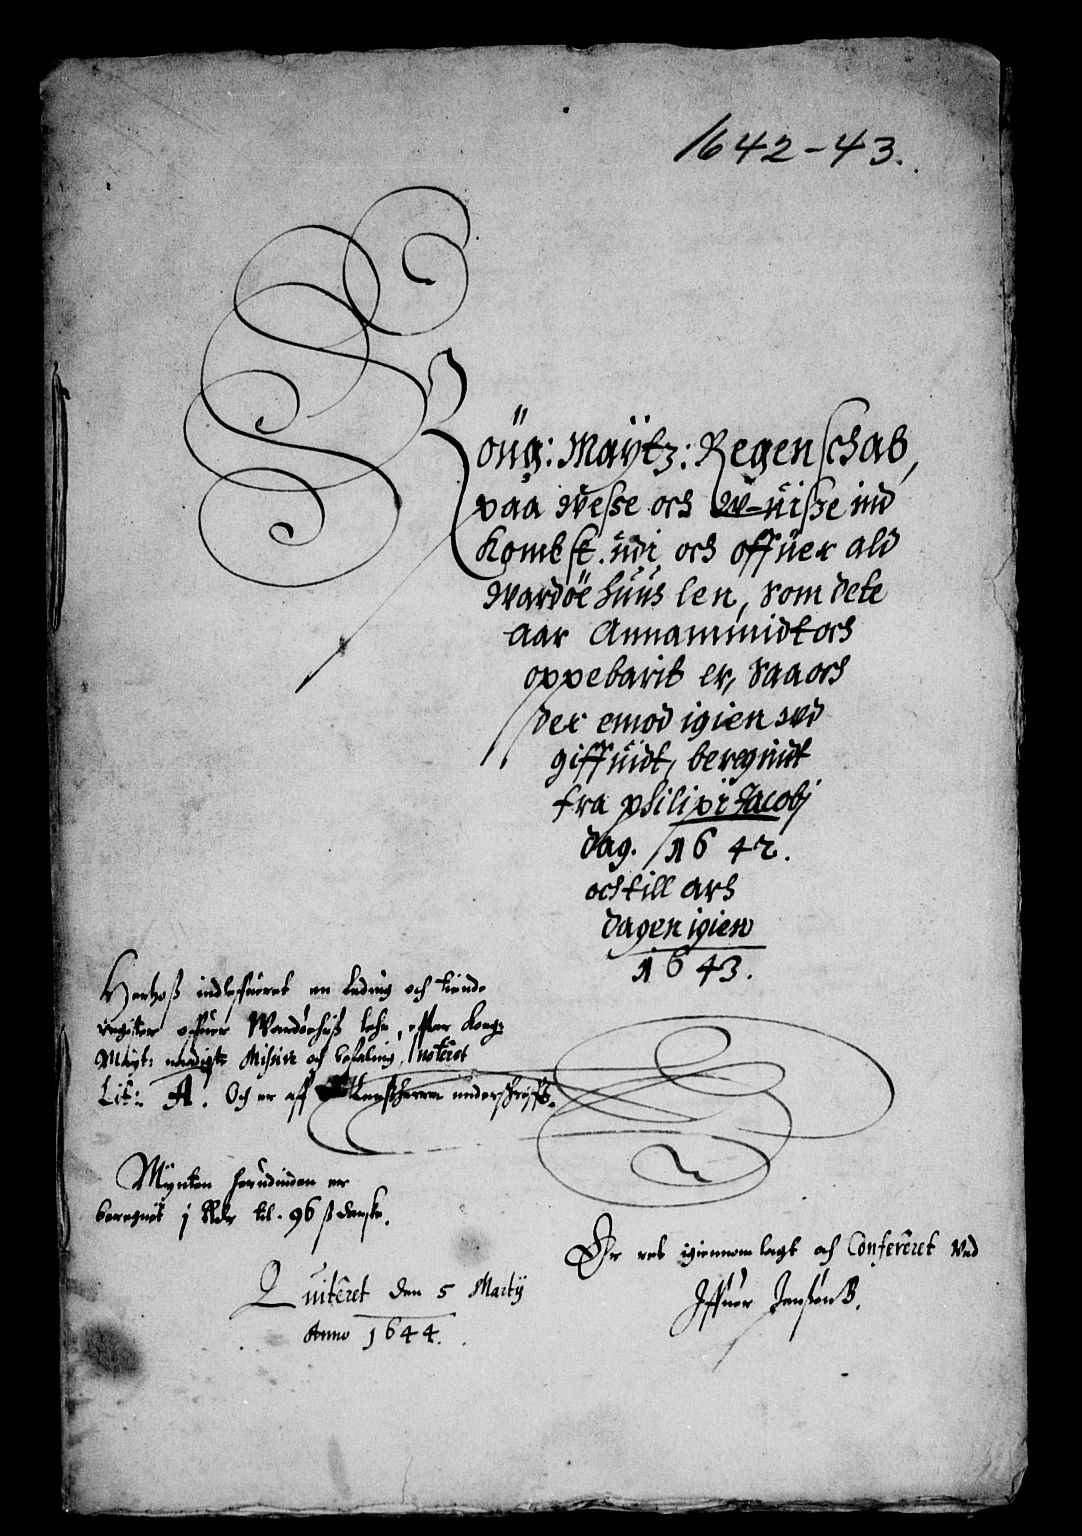 1642-43.
Köng: Maÿtz: Regenschab,
paa Wesse och W-uisse ind
Kombst. udi och offuer ald
Wardöehuus len, som dete
aar Annammidt och
oppebarit er, saa och
der emod igien wd
giffuidt, beregnidt
fra philipi Jacobj
dag. 1642.
och till ars
dagen igien
1643.
Herhoß indleffueret en leding och tiende
register offuer Wardöehuß lehn, efter Kong:
Maÿt: naadigste Missive och befaling, Noteret
Lit: A. Och er aff Lensherren underschrefft.
Mÿnten herudinden er
beregnet j Rdr til 96 ß danske.
Quiteret den 5 Martij
Anno 1644.
Er ret igiennom lagt och Confereret ved
Iffuer Jensøn B.